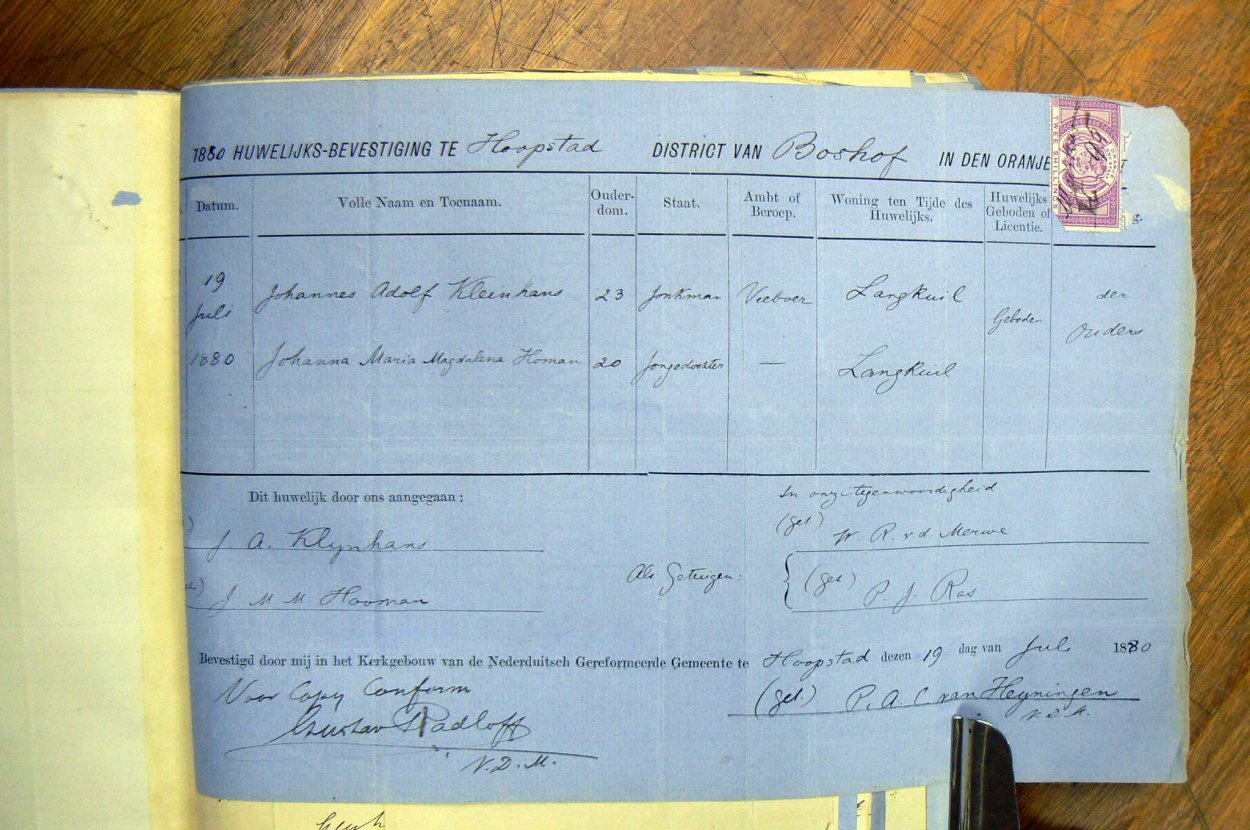 1880 HUWELIJKS-BEVESTIGING TE Hoopstad DISTRICT VAN Boshof IN DEN ORANJE
Datum. Volle Naam en Toenaam. Ouder-dom. Staat. Ambt of Beroep. Woning ten Tijde des Huwelijks. Huwelijks Geboden of Licentie.
TWEE SHILLINGS
19 Juli 1880
Johannes Adolf Kleinhans 23 Jonkman Veeboer Langkuil
Geboden der Ouders
Johanna Maria Magdalena Homan 20 Jongedochter — Langkuil
Dit huwelijk door ons aangegaan :
In onze tegenwoordigheid
J. A. Klynhans
(get) W. R. v. d. Merwe
Als Getuigen:
J M M Hooman
(get) P. J. Ras
Bevestigd door mij in het Kerkgebouw van de Nederduitsch Gereformeerde Gemeente te Hoopstad dezen 19 dag van Juli 1880
Voor Copy Conform
(get.) P. A. C van Heyningen
V. D. M.
Gustav Radloff
V. D. M.